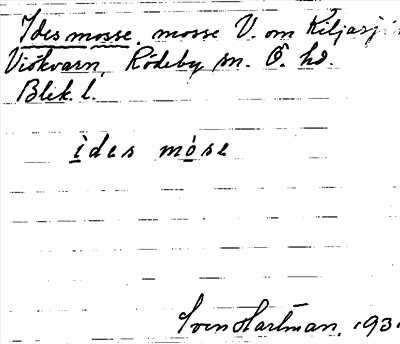 Idesmosse, mosse V. om Kiljasj
Viökvarn, Rödeby sn. Ö. hd.
Blek. l.
ìdes mòse
Sven Hartman, 193